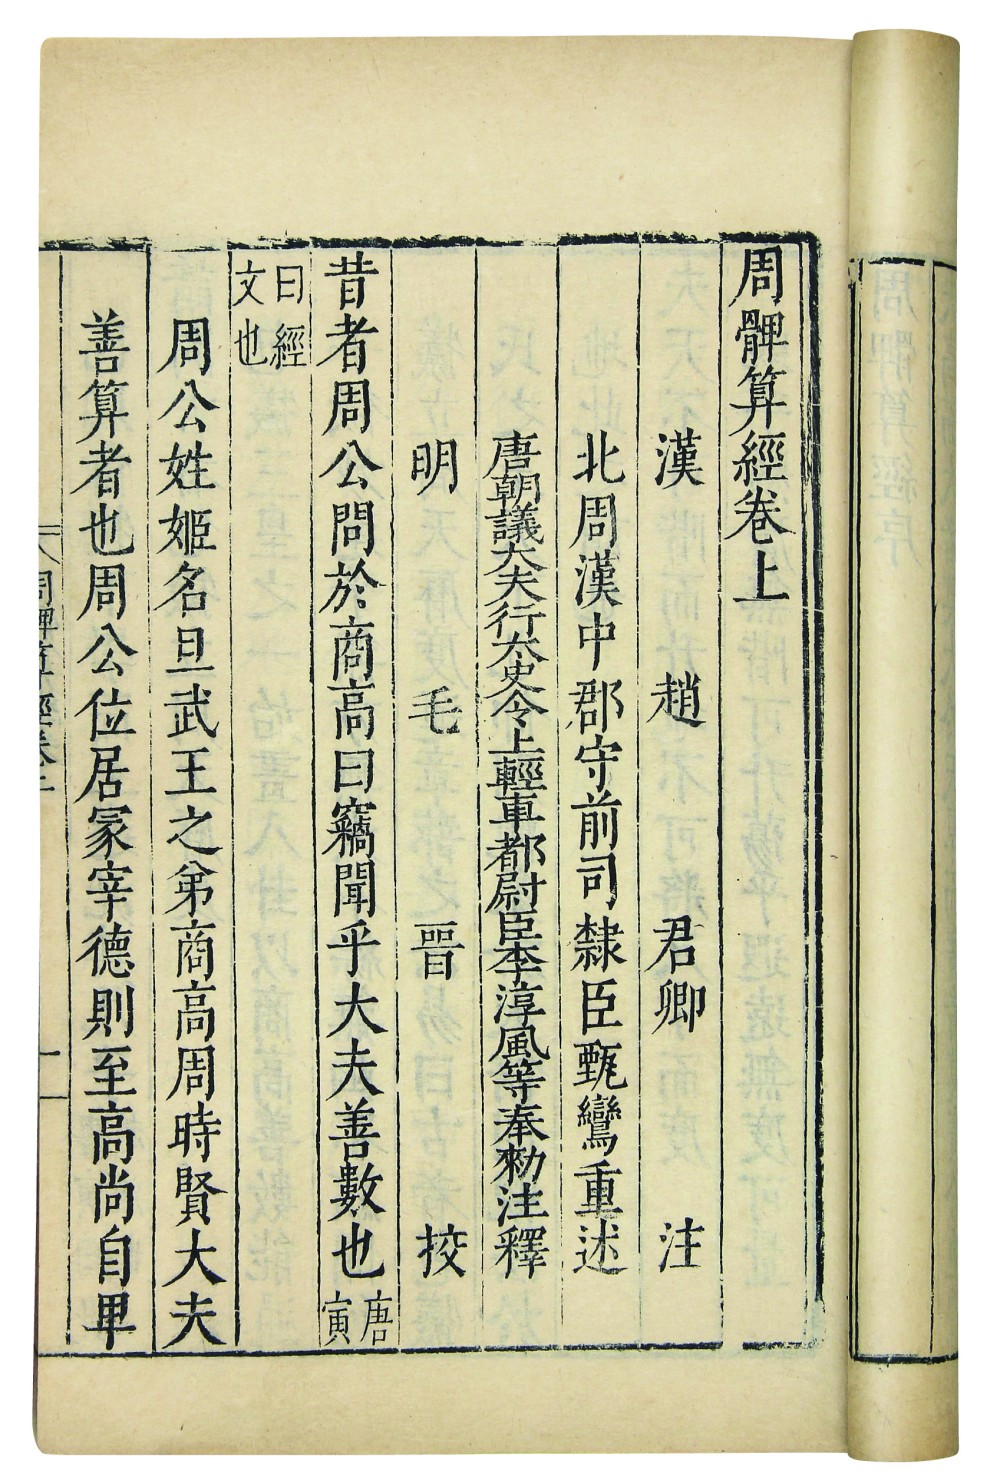 周髀算經卷上
漢 趙 君卿 注
北周漢中郡守前司隸臣甄鸞重述
唐朝議大夫行太史令上輕車都尉臣李淳風等奉勑注釋
明 毛 晉 挍
昔者周公問於商高曰竊聞乎大夫善數也唐寅
曰經
文也
周公姓姬名旦武王之弟商高周時賢大夫
善算者也周公位居冢宰德則至高尚自卑
周髀算經卷上
一
周髀算經序